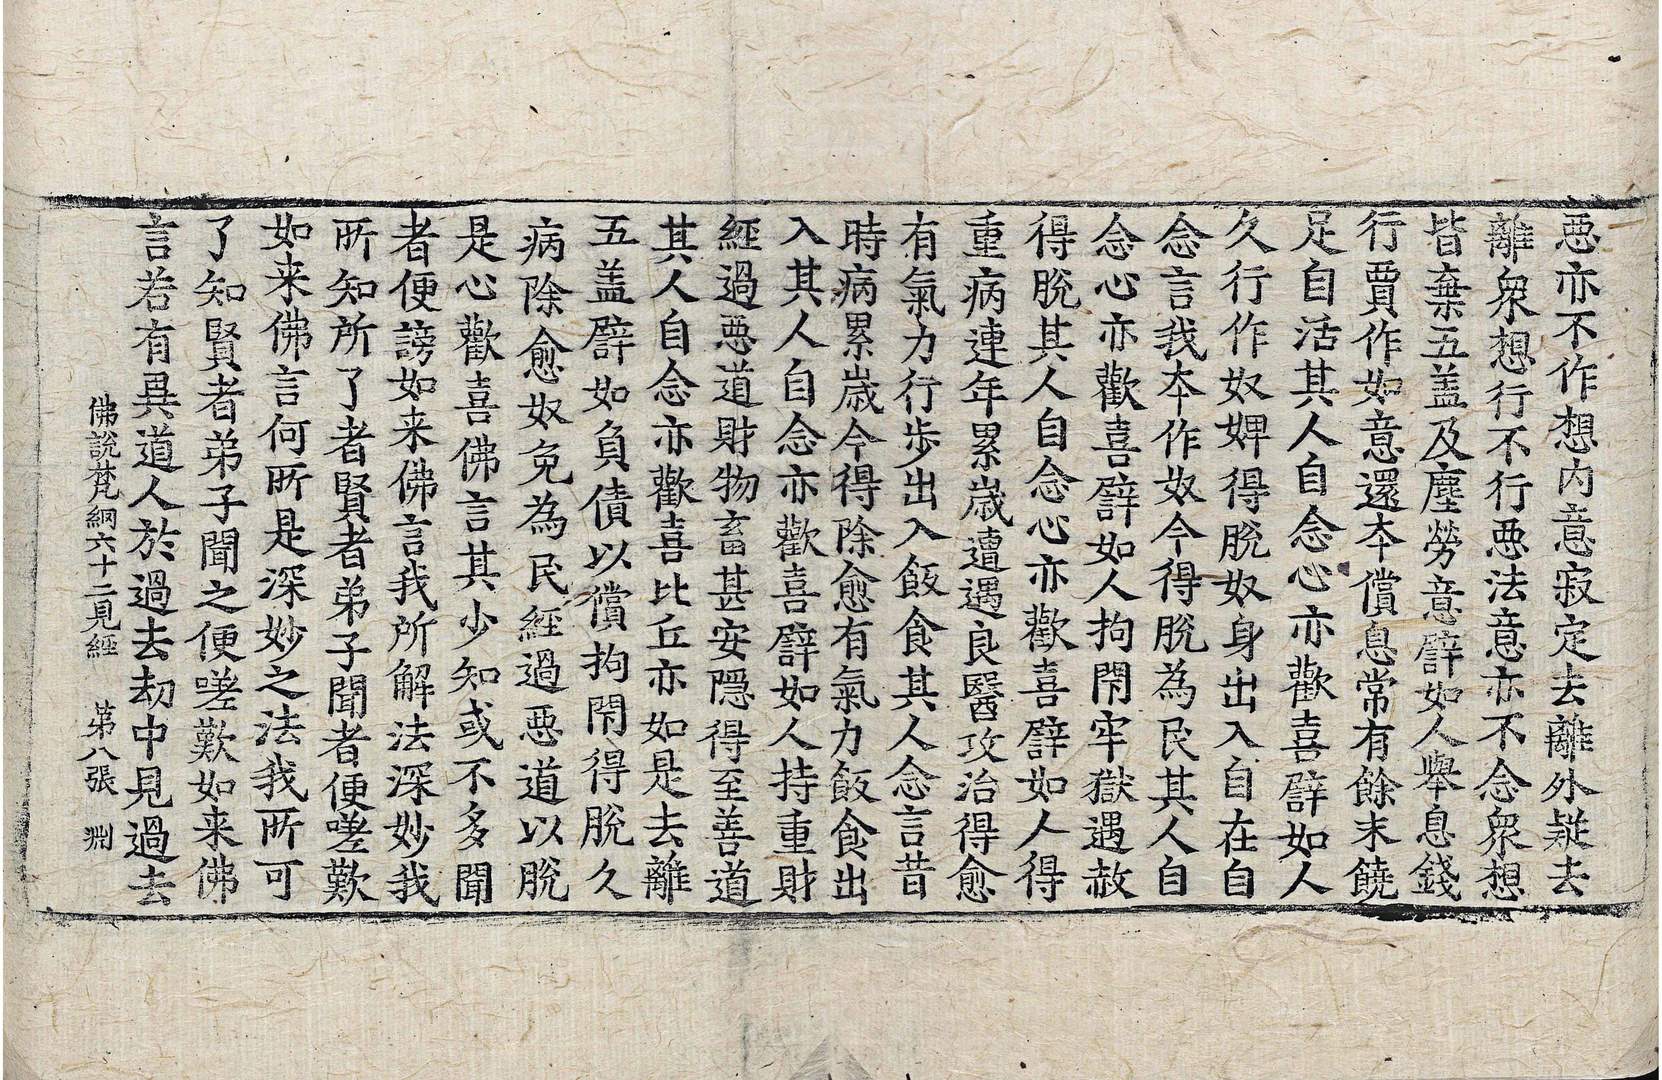 惡亦不作想内意寂定去離外疑去
離衆想行不行惡法意亦不念衆想
皆棄五盖及塵勞意譬如人舉息錢
行賈作如意還夲償息常有餘末饒
足自活其人自念心亦歡喜譬如人
久行作奴婢得脫奴身出入自在自
念言我夲作奴今得脫為民其人自
念心亦歡喜譬如人拘閇牢獄遇赦
得脫其人自念心亦歡喜譬如人得
重病連年累歲遭遇良醫攻治得愈
有氣力行步出入飯食其人念言昔
時病累歲今得除愈有氣力飯食出
入其人自念亦歡喜譬如人持重財
經過惡道財物畜甚安隱得至善道
其人自念亦歡喜比丘亦如是去離
五盖譬如負債以償拘閇得脫久
病除愈奴免為民經過惡道以脫
是心歡喜佛言其少知或不多聞
者便謗如来佛言我所解法深妙我
所知所了者賢者弟子聞者便嗟歎
如来佛言何所是深妙之法我所可
了知賢者弟子聞之便嗟歎如来佛
言若有異道人於過去劫中見過去
佛說梵網六十二見經　第八張　淵